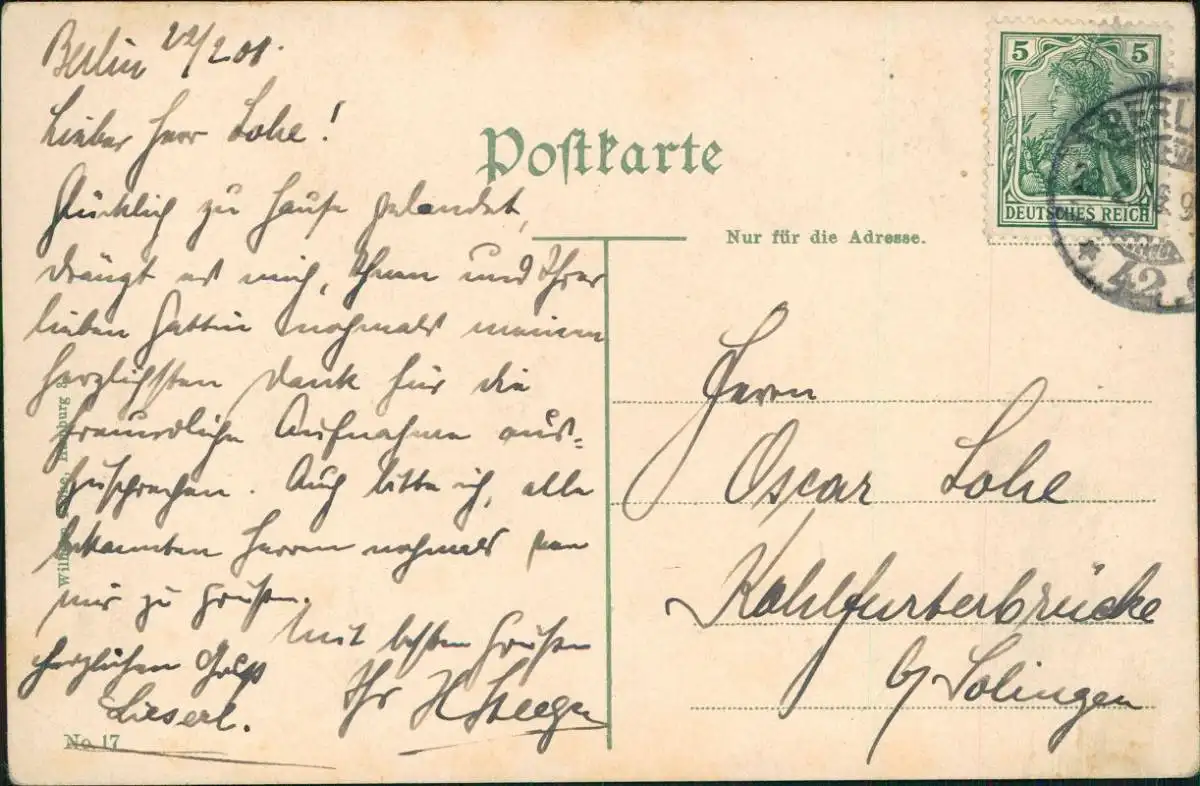 Berlin 22/2 08.
Lieber Herr Lohe!
Glücklich zu Hause gelandet,
drängt es mich, Ihnen und Ihrer
lieben Gattin nochmals meinen
herzlichsten Dank für die
freundliche Aufnahme aus-
zusprechen. Auch bitte ich, alle
bekannten Herren nochmals von
mir zu grüßen.
Mit besten Grüßen
Ihr H Steegen
herzlichen Gruß
Lieserl.
No. 17
Postkarte
Nur für die Adresse.
5 5
DEUTSCHES REICH
BERLIN
* 42
Herrn
Oscar Lohe
Kohlfurterbrücke
b/ Solingen